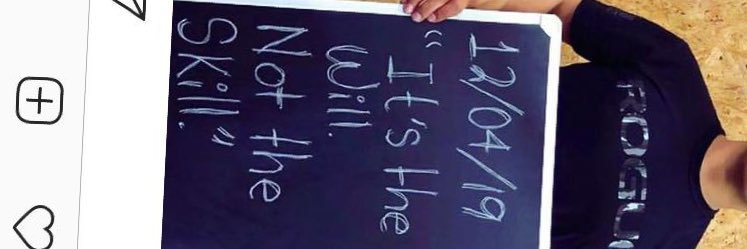 ROGU
12/04/19
"It's the
Will.
Not the
Skill."